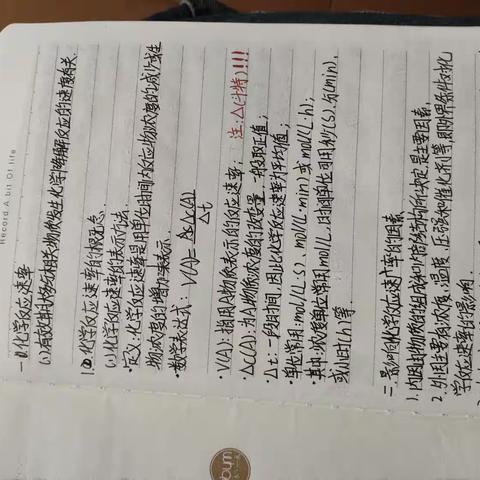 Record A bit Of life
一.化学反应速率
(1)有效率
化学
反应的速度有关.
1.化学反应速率的
(1)化学反应速率的表示方法.
·定义:化学反应速率是用单位时间内反应物浓度的减少或生
物浓度的增加来表示.
·数学表达式: V(A)= Δc(A)/Δt 注:Δ(斗特)!!!
·V(A):指用A物质表示的反应速率;
·Δc(A):为A物质浓度的改变量.一般取正值;
·Δt:一段时间,因此化学反应速率为平均值;
·单位常用:mol/(L·s)、mol/(L·min)或mol/(L·h);
·其中:浓度单位常用mol/L,时间单位可用秒(s)、分(min),
或小时(h)等.
二.影响化学反应速率的因素
1.内因:由物质的组成和内部结构所决定,是主要因素.
2.外因:主要有浓度、温度、压强和催化剂等,即外界条件对化
学反应速率的影响.
bum